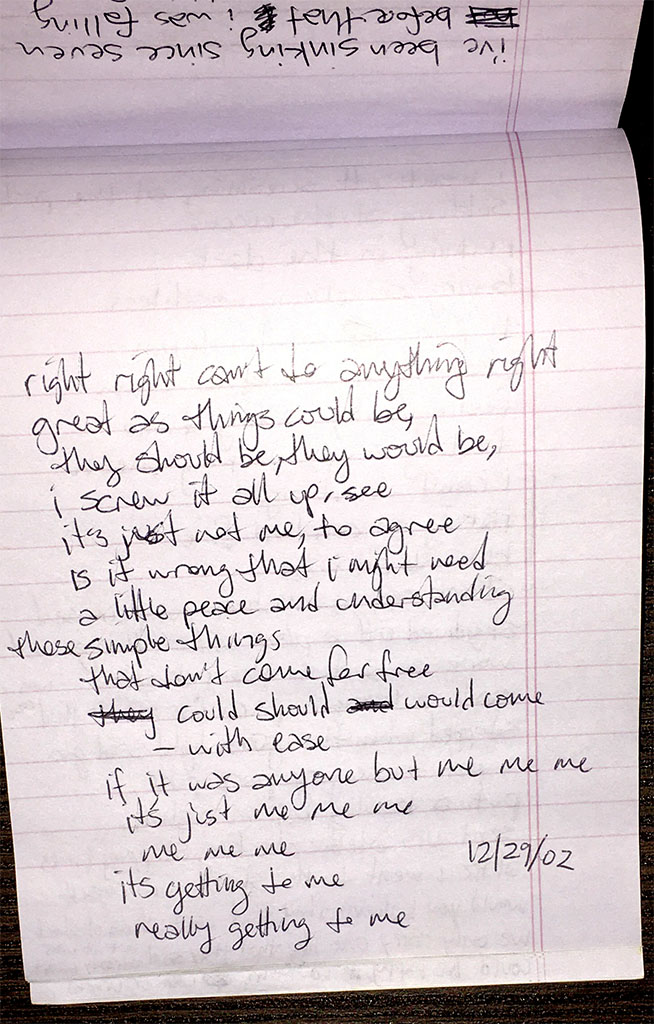 i've been sinking since seven
before that i was falling
right right can't do anything right
great as things could be,
they should be, they would be,
i screw it all up, see
it's just not me, to agree
is it wrong that i might need
a little peace and understanding
those simple things
that don't come for free
they could should and would come
- with ease
if it was anyone but me me me
it's just me me me
me me me
12/29/02
its getting to me
really getting to me